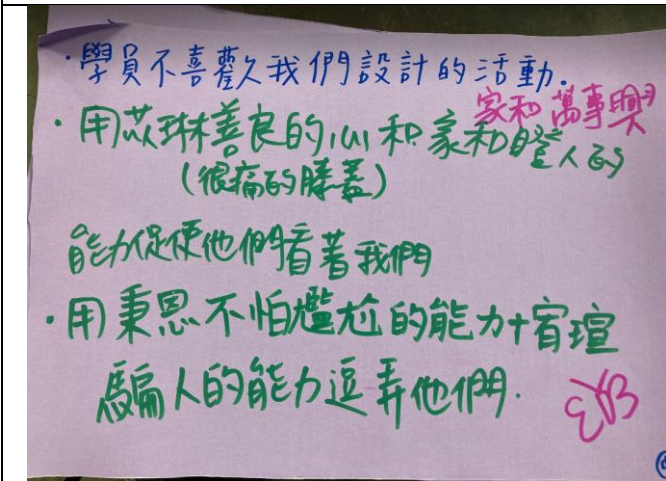 ·學員不喜歡我們設計的活動.
家和萬事興
·用苡琳善良的心和家和瞪人的
(很痛的膝蓋)
能力促使他們看著我們
·用秉恩不怕尷尬的能力+宥瑄
騙人的能力逗弄他們.